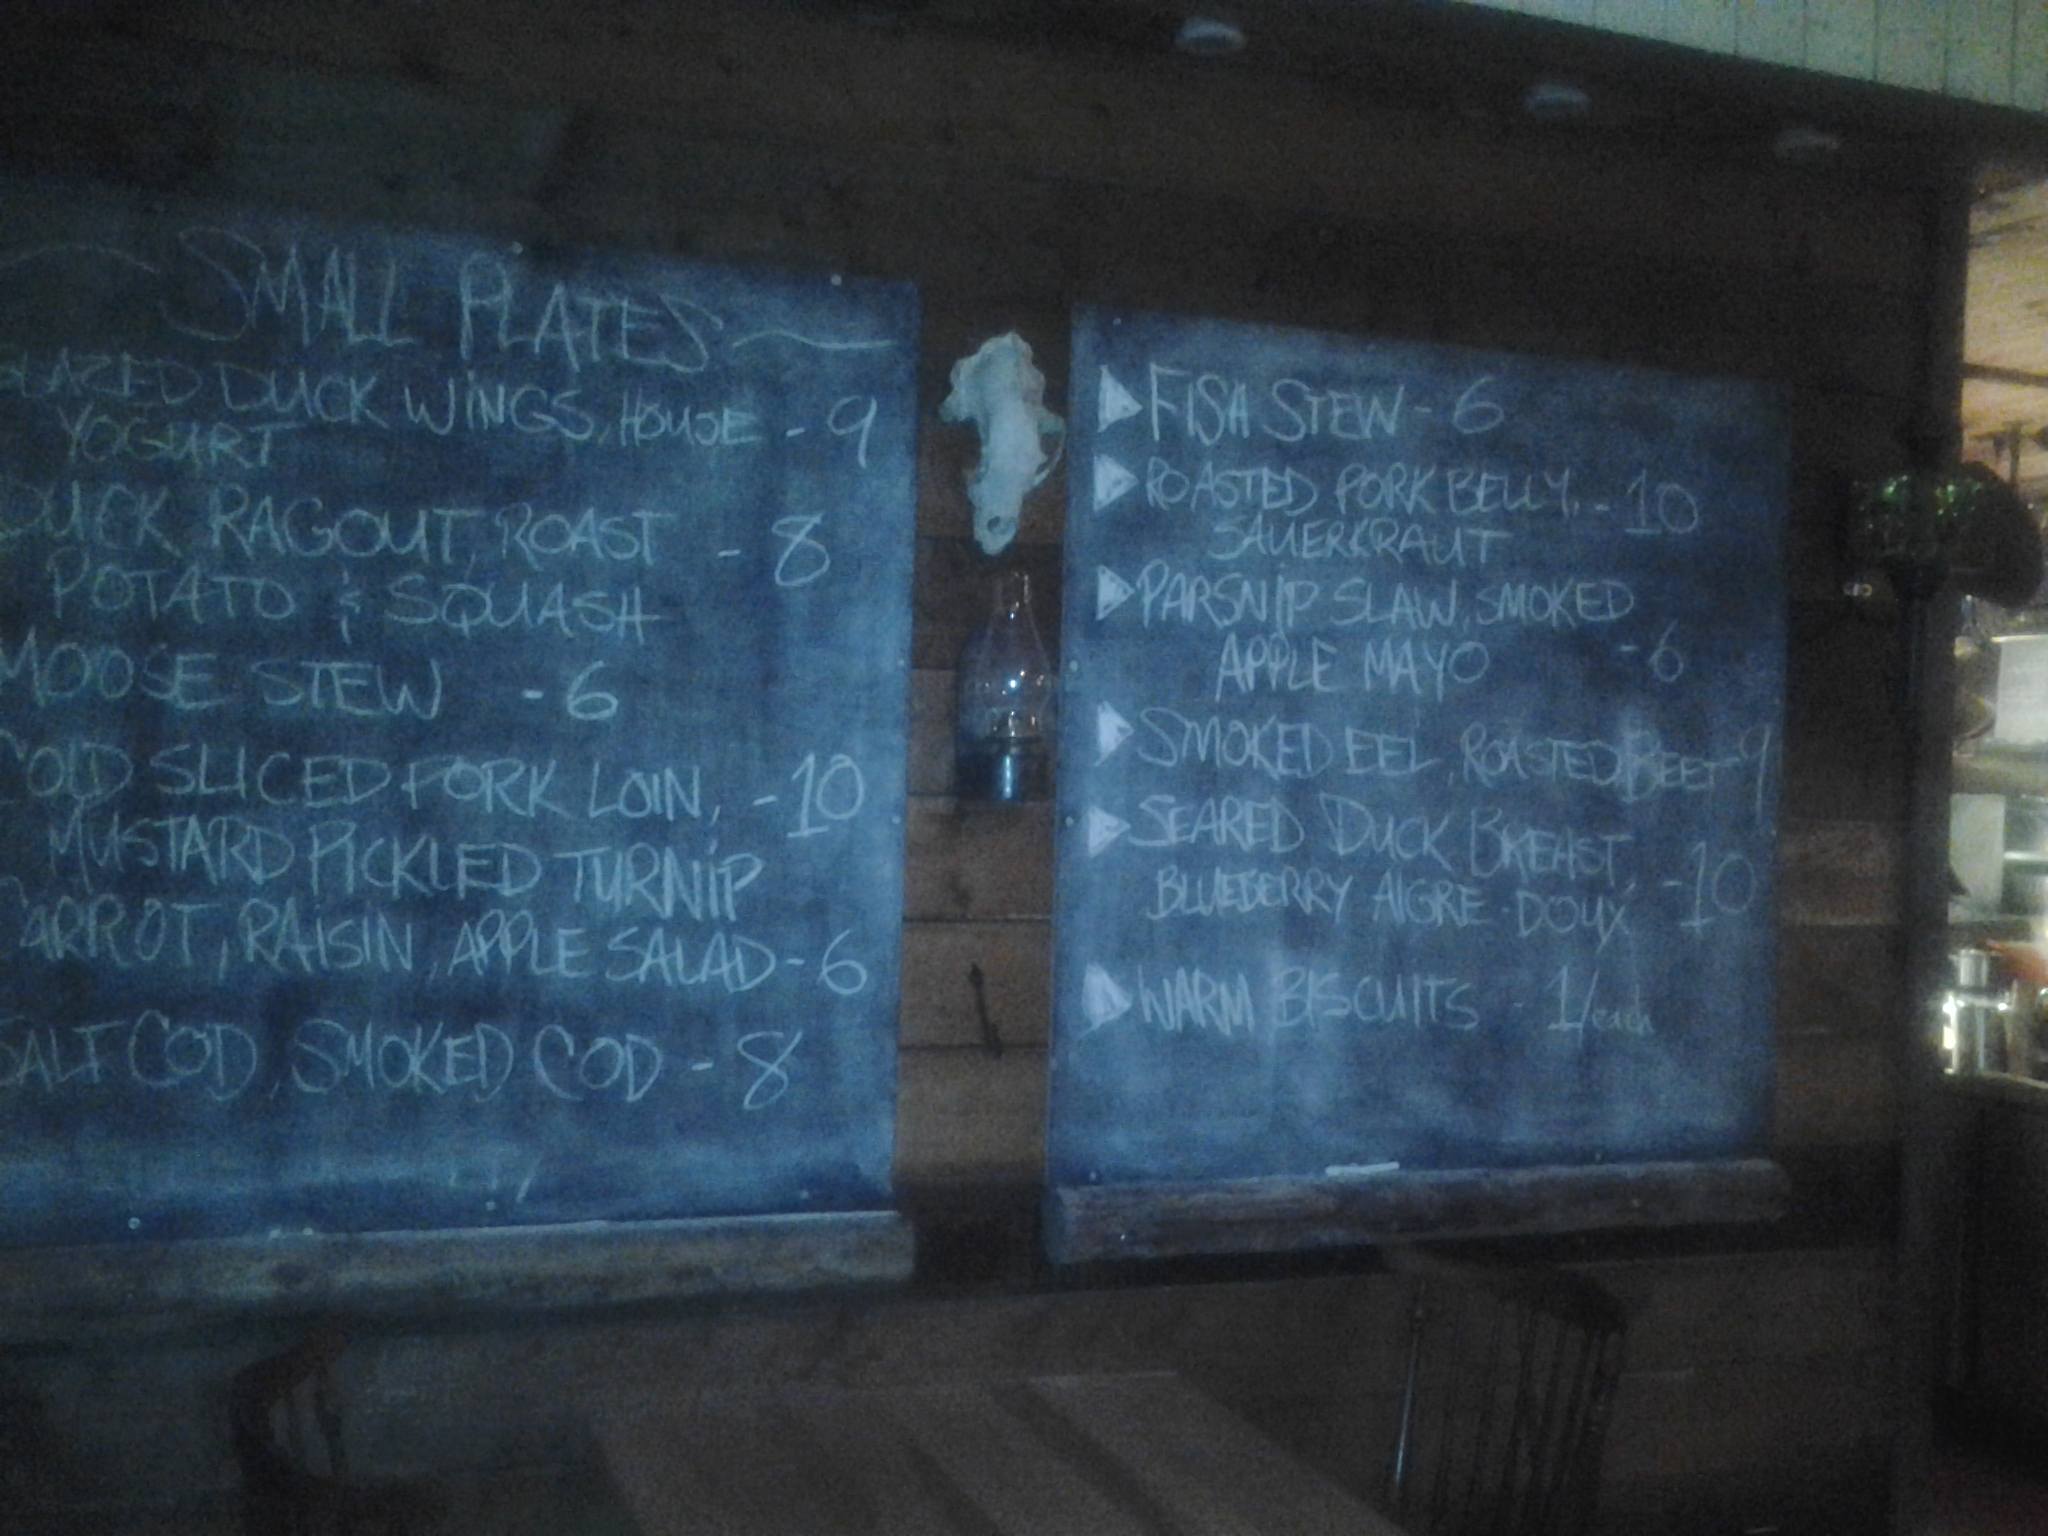 SMALL PLATES
GLAZED DUCK WINGS, HOUSE - 9
YOGURT
DUCK RAGOUT, ROAST - 8
POTATO & SQUASH
MOOSE STEW - 6
COLD SLICED PORK LOIN, - 10
MUSTARD PICKLED TURNIP
CARROT, RAISIN, APPLE SALAD - 6
SALT COD, SMOKED COD - 8
FISH STEW - 6
ROASTED PORK BELLY, - 10
SAUERKRAUT
PARSNIP SLAW, SMOKED
APPLE MAYO - 6
SMOKED EEL, ROASTED BEET - 9
SEARED DUCK BREAST,
BLUEBERRY AIGRE-DOUX - 10
WARM BISCUITS - 1/each